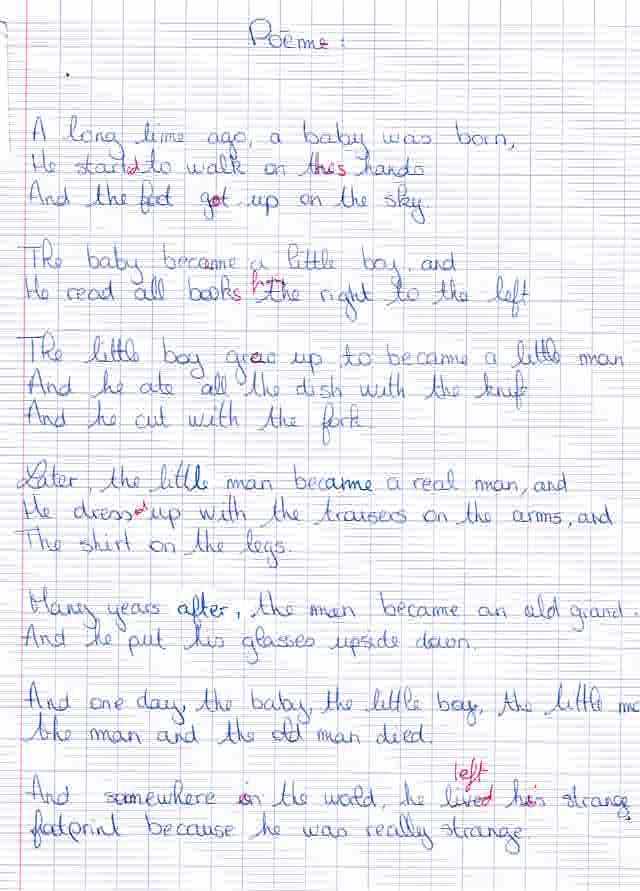 Poème :
A long time ago, a baby was born,
He started to walk on this hands
And the feet got up on the sky.
The baby became a little boy, and
He read all books from the right to the left
The little boy grew up to became a little man
And he ate all the dish with the knif
And he cut with the fork
Later, the little man became a real man, and
He dressed up with the trousers on the arms, and
The shirt on the legs.
Many years after, the man became an old grand.
And he put his glasses upside down.
And one day, the baby, the little boy, the little ma
the man and the old man died.
left
And somewhere in the world, he lived his strange
footprint because he was really strange.